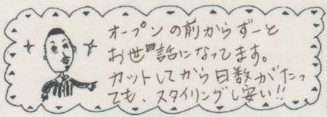 オープンの前からずーと
お世話になってます。
カットしてから日数がたっ
ても、スタイリングし安い!!